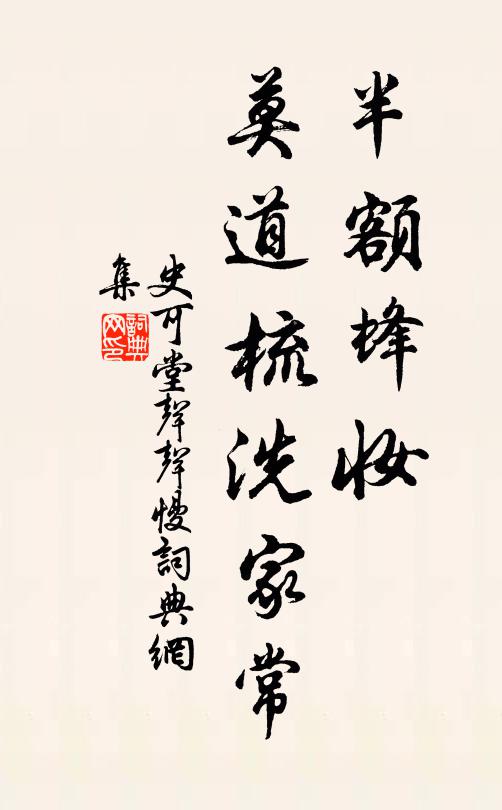 半額蜂妝
莫道梳洗家常
史可堂聲聲慢詞典網
集
詞典網印